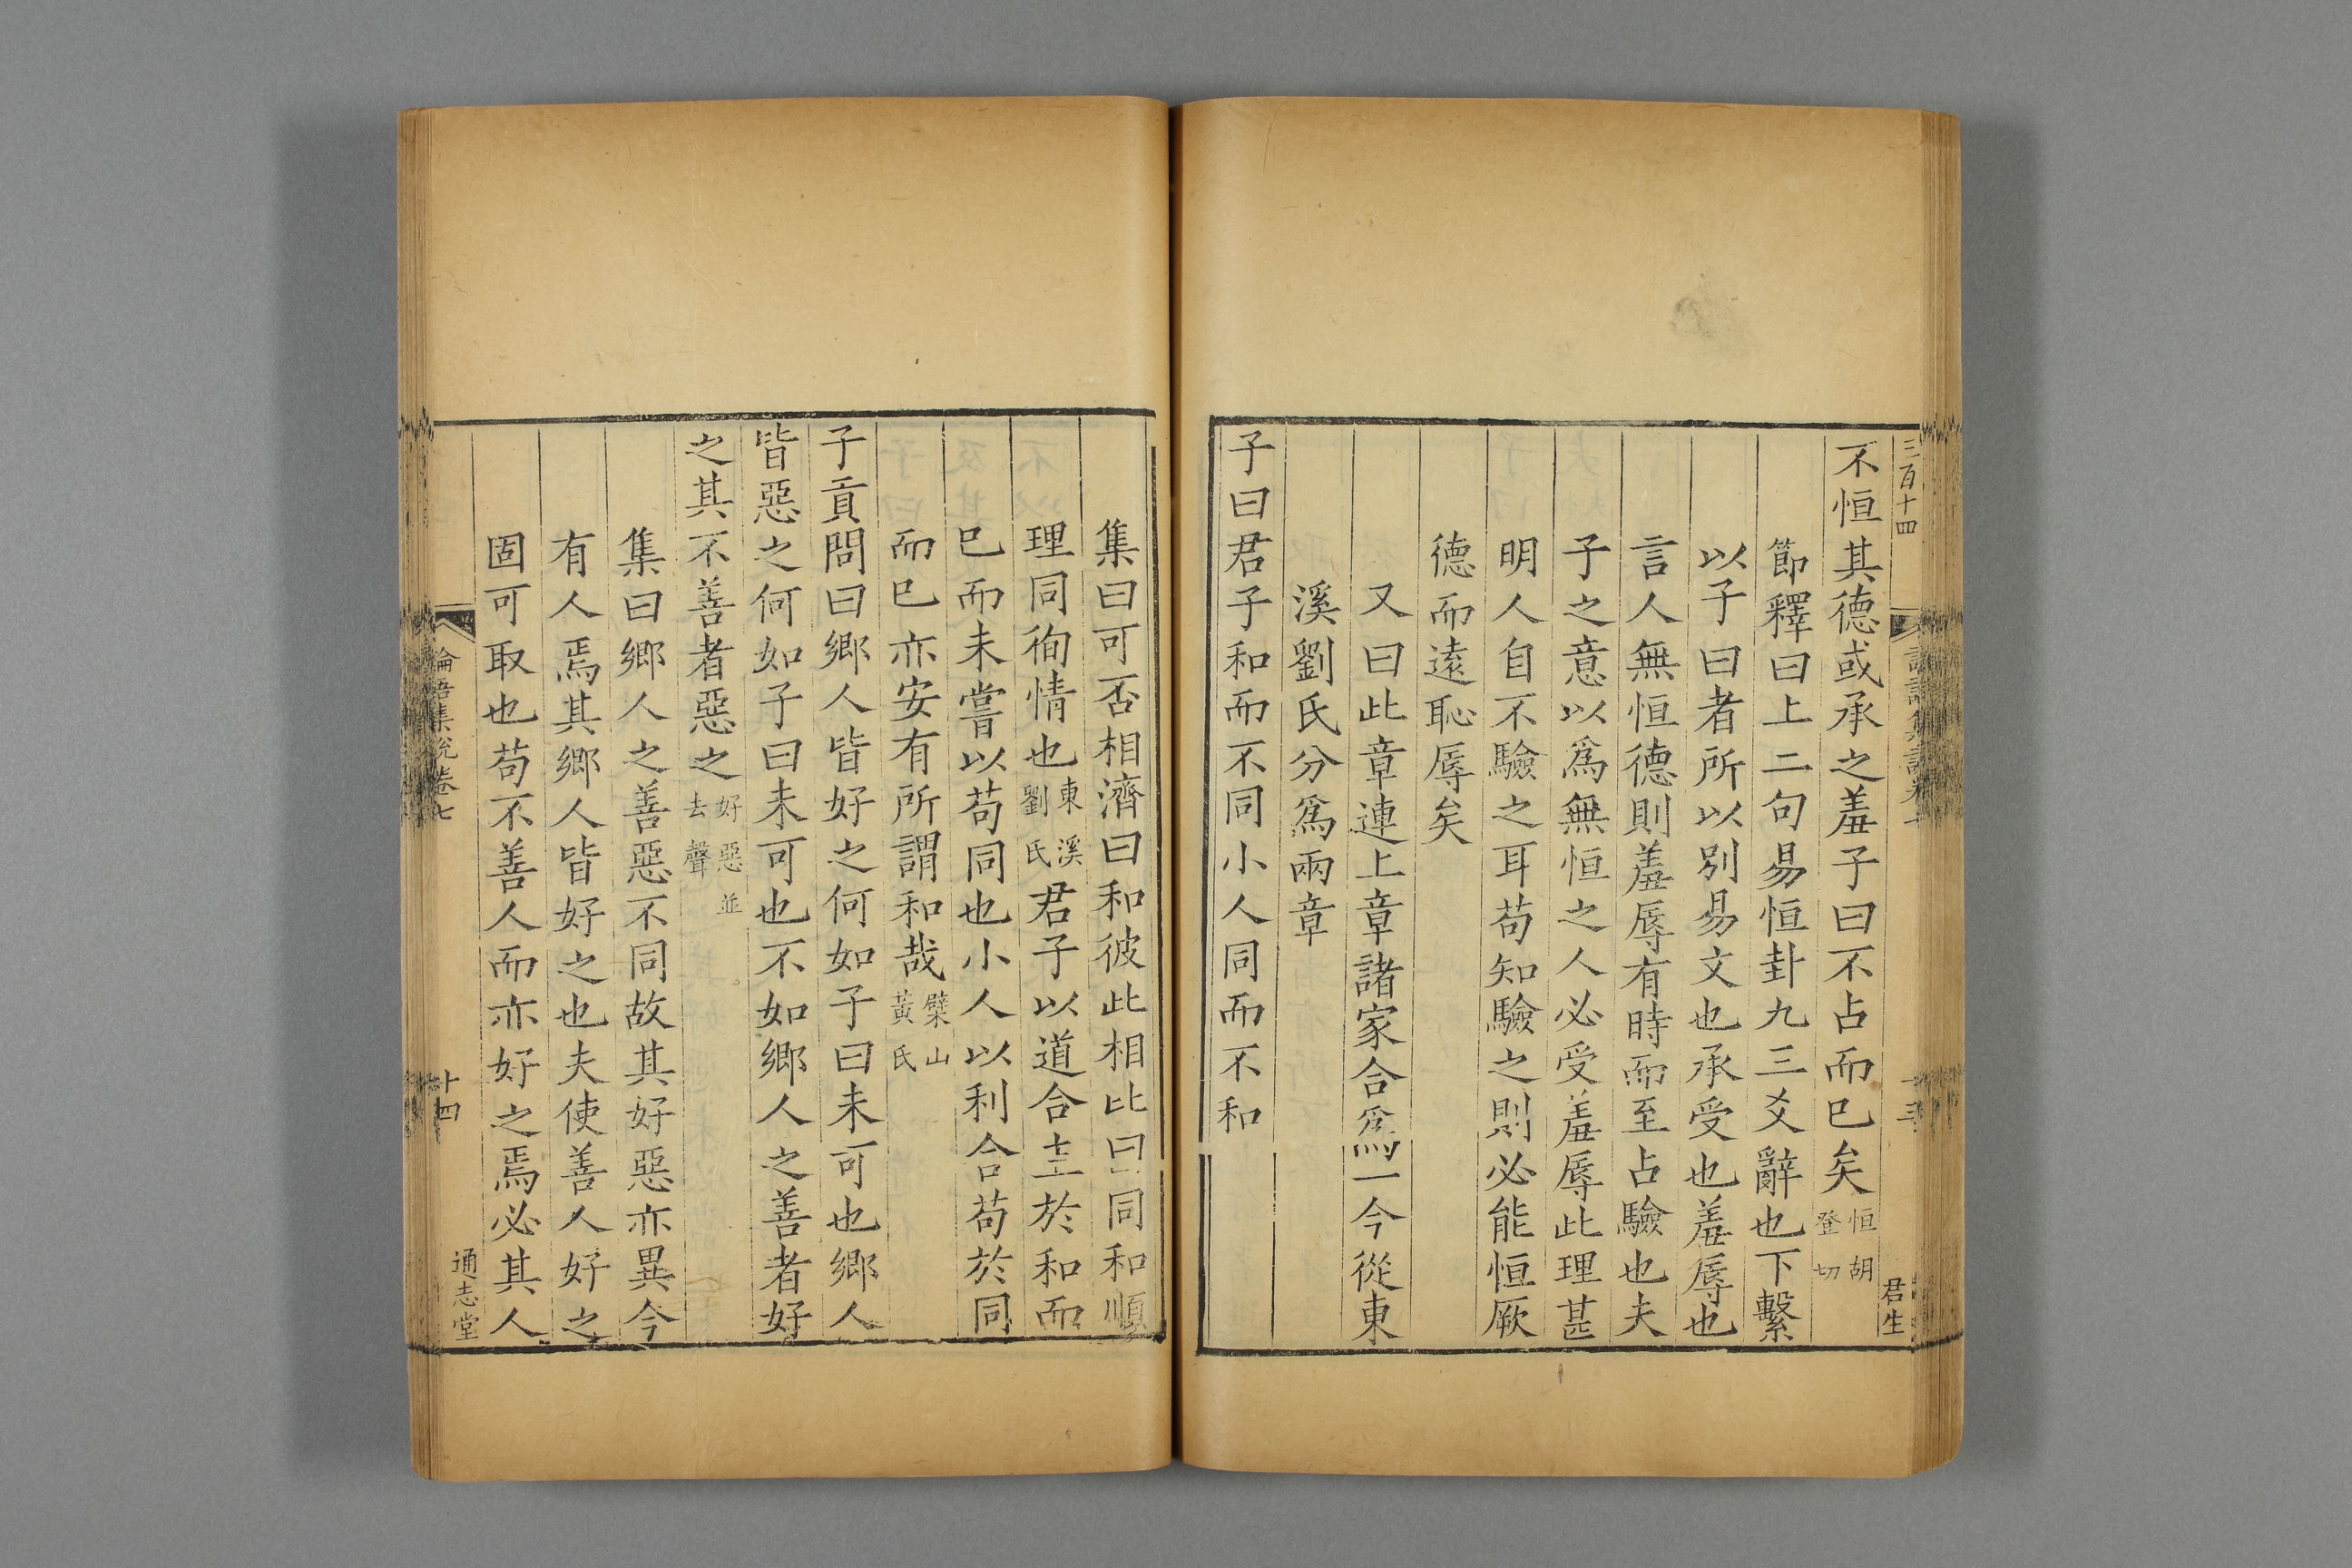 三百十四
君生
不恒其德或承之羞子曰不占而巳矣恒胡登切
節釋曰上二句易恒卦九三爻辭也下繫
以子曰者所以別易文也承受也羞辱也
言人無恒德則羞辱有時而至占驗也夫
子之意以爲無恒之人必受羞辱此理甚
明人自不驗之耳苟知驗之則必能恒厥
德而遠恥辱矣
又曰此章連上章諸家合爲一今從東
溪劉氏分爲兩章
子曰君子和而不同小人同而不和
集曰可否相濟曰和彼此相比曰同和順
理同徇情也東溪劉氏君子以道合主於和而
巳而未嘗以苟同也小人以利合苟於同
而巳亦安有所謂和哉檗山黃氏
子貢問曰鄉人皆好之何如子曰未可也鄉人
皆惡之何如子曰未可也不如鄉人之善者好
之其不善者惡之好惡並去聲
集曰鄉人之善惡不同故其好惡亦異今
有人焉其鄉人皆好之也夫使善人好之
固可取也苟不善人而亦好之焉必其人
論語集說卷七
十四
通志堂